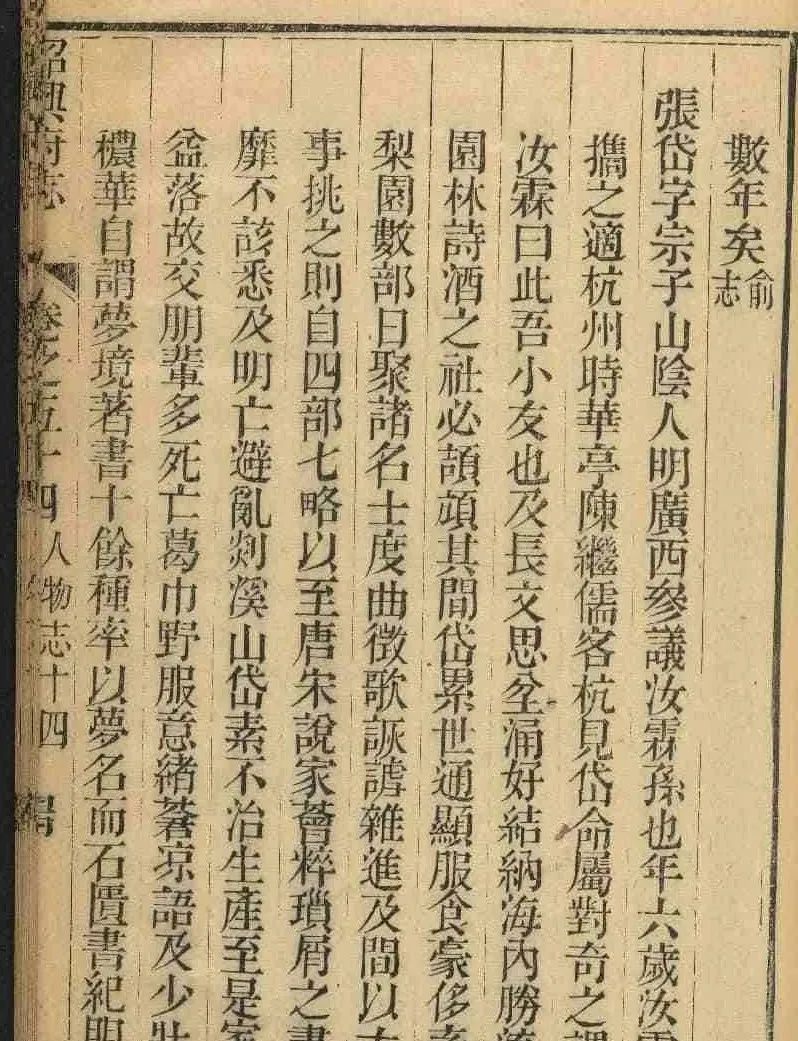 數年矣俞志
張岱字宗子山陰人明廣西參議汝霖孫也年六歲汝
擕之適杭州時華亭陳繼儒客杭見岱命屬對奇之
汝霖曰此吾小友也及長文思坌涌好結納海內勝
園林詩酒之社必頡頏其間岱累世通顯服食豪侈
梨園數部日聚諸名士度曲徵歌詼謔雜進及間以
事挑之則自四部七略以至唐宋說家薈粹瑣屑之書
靡不該悉及明亡避亂剡溪山岱素不治生產至是家
益落故交朋輩多死亡葛巾野服意緒蒼凉語及少壯
穠華自謂夢境著書十餘種率以夢名而石匱書紀明
紹興府志 卷之五十四 人物志十四